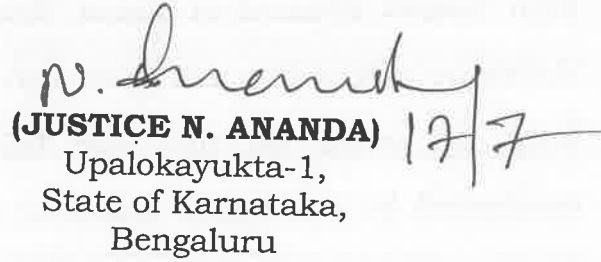 N. Ananda
(JUSTICE N. ANANDA) 17/7
Upalokayukta-1,
State of Karnataka,
Bengaluru